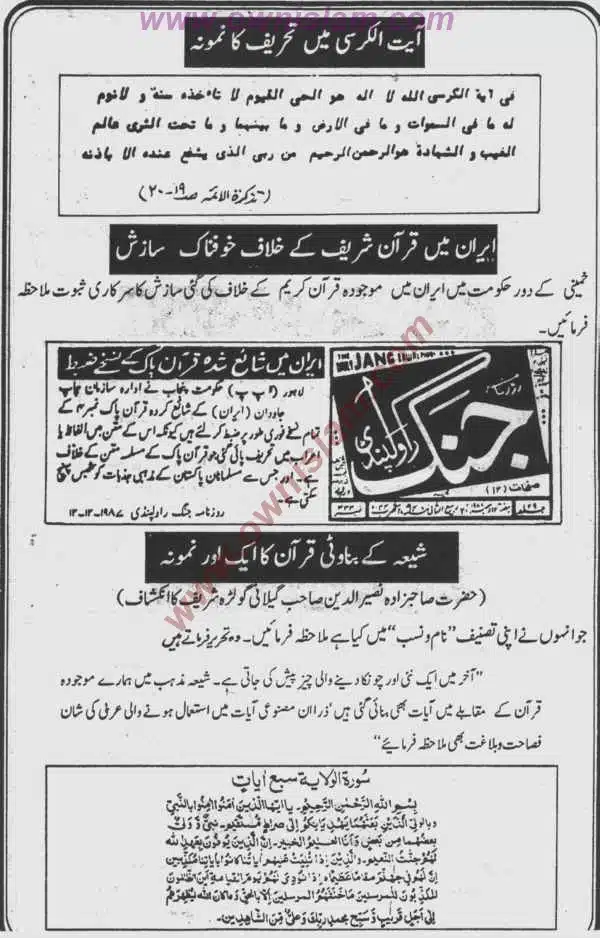 www.ownislam.com
آیت الکرسی میں تحریف کا نمونہ
فی ایة الکرسی الله لا اله هو الحی القیوم لا تاءخذه سنة و لانوم
له ما فی السموات و ما فی الارض و ما بینهما و ما تحت الثری عالم
الغیب و الشهادة هوالرحمن الرحیم من ربی الذی یشفع عنده الا باذنه
(تذکرة الائمه صـ۱۹-۲۰)
ایران میں قرآن شریف کے خلاف خوفناک سازش
خمینی کے دور حکومت میں ایران میں موجودہ قرآن کریم کے خلاف کی گئی سازش کا سرکاری ثبوت ملاحظہ
فرمائیں۔
ایران میں شائع شدہ قرآن پاک کے نسخے ضبط
لاہور (پ پ) حکومت پنجاب نے ادارہ سازمان چاپ
جاودان (ایران) کے شائع کردہ قرآن پاک نمبر ۴ کے
تمام نسخے فوری طور پر ضبط کر لئے ہیں کیونکہ اس کے متن میں الفاظ یا
اعراب میں تحریف پائی گئی جو قرآن پاک کے مسلمہ متن کے خلاف
ہے۔ اور جس سے مسلمانان پاکستان کے مذہبی جذبات کو ٹھیس پہنچ
سکتی ہے۔
روزنامہ جنگ راولپنڈی ۱۹۸۷-۱۲-۱۲
THE DAILY JANG
جنگ
راولپنڈی
صفحات (۱۲)
شیعہ کے بناوٹی قرآن کا ایک اور نمونہ
(حضرت صاحبزادہ نصیر الدین صاحب گیلانی گولڑہ شریف کا انکشاف)
جو انہوں نے اپنی تصنیف "نام و نسب" میں کیا ہے ملاحظہ فرمائیں۔ وہ تحریر فرماتے ہیں
"آخر میں ایک نئی اور چونکا دینے والی چیز پیش کی جاتی ہے۔ شیعہ مذہب میں ہمارے موجودہ
قرآن کے مقابلے میں آیات بھی بنائی گئی ہیں ذرا ان مصنوعی آیات میں استعمال ہونے والی عربی کی شان
فصاحت و بلاغت بھی ملاحظہ فرمائیے"
سورة الولاية سبع ايات
بسم الله الرحمن الرحيم۔ يا ايها الذين امنوا امنوا بالنبي
وبالولي الذين بعثنهما يهديانكم إلى صراط مستقيم۔ نبي و ولي
بعضهما من بعض وانا العليم الخبير۔ ان الذين يوفون بعهد الله
لهم جنت النعيم۔ والذين إذا تليت عليهم اياتنا كانوا باياتنا مكذبين
ان لهم في جهنم مقاما عظيما۔ إذا نودي لهم يوم القيامة اين الظالمون
المكذبون للمرسلين ما خلفهم المرسلين إلا بالحق وما كان الله ليظهرهم
إلى أجل قريب و سبح بحمد ربك وعلي من الشاهدين۔
www.ownislam.com